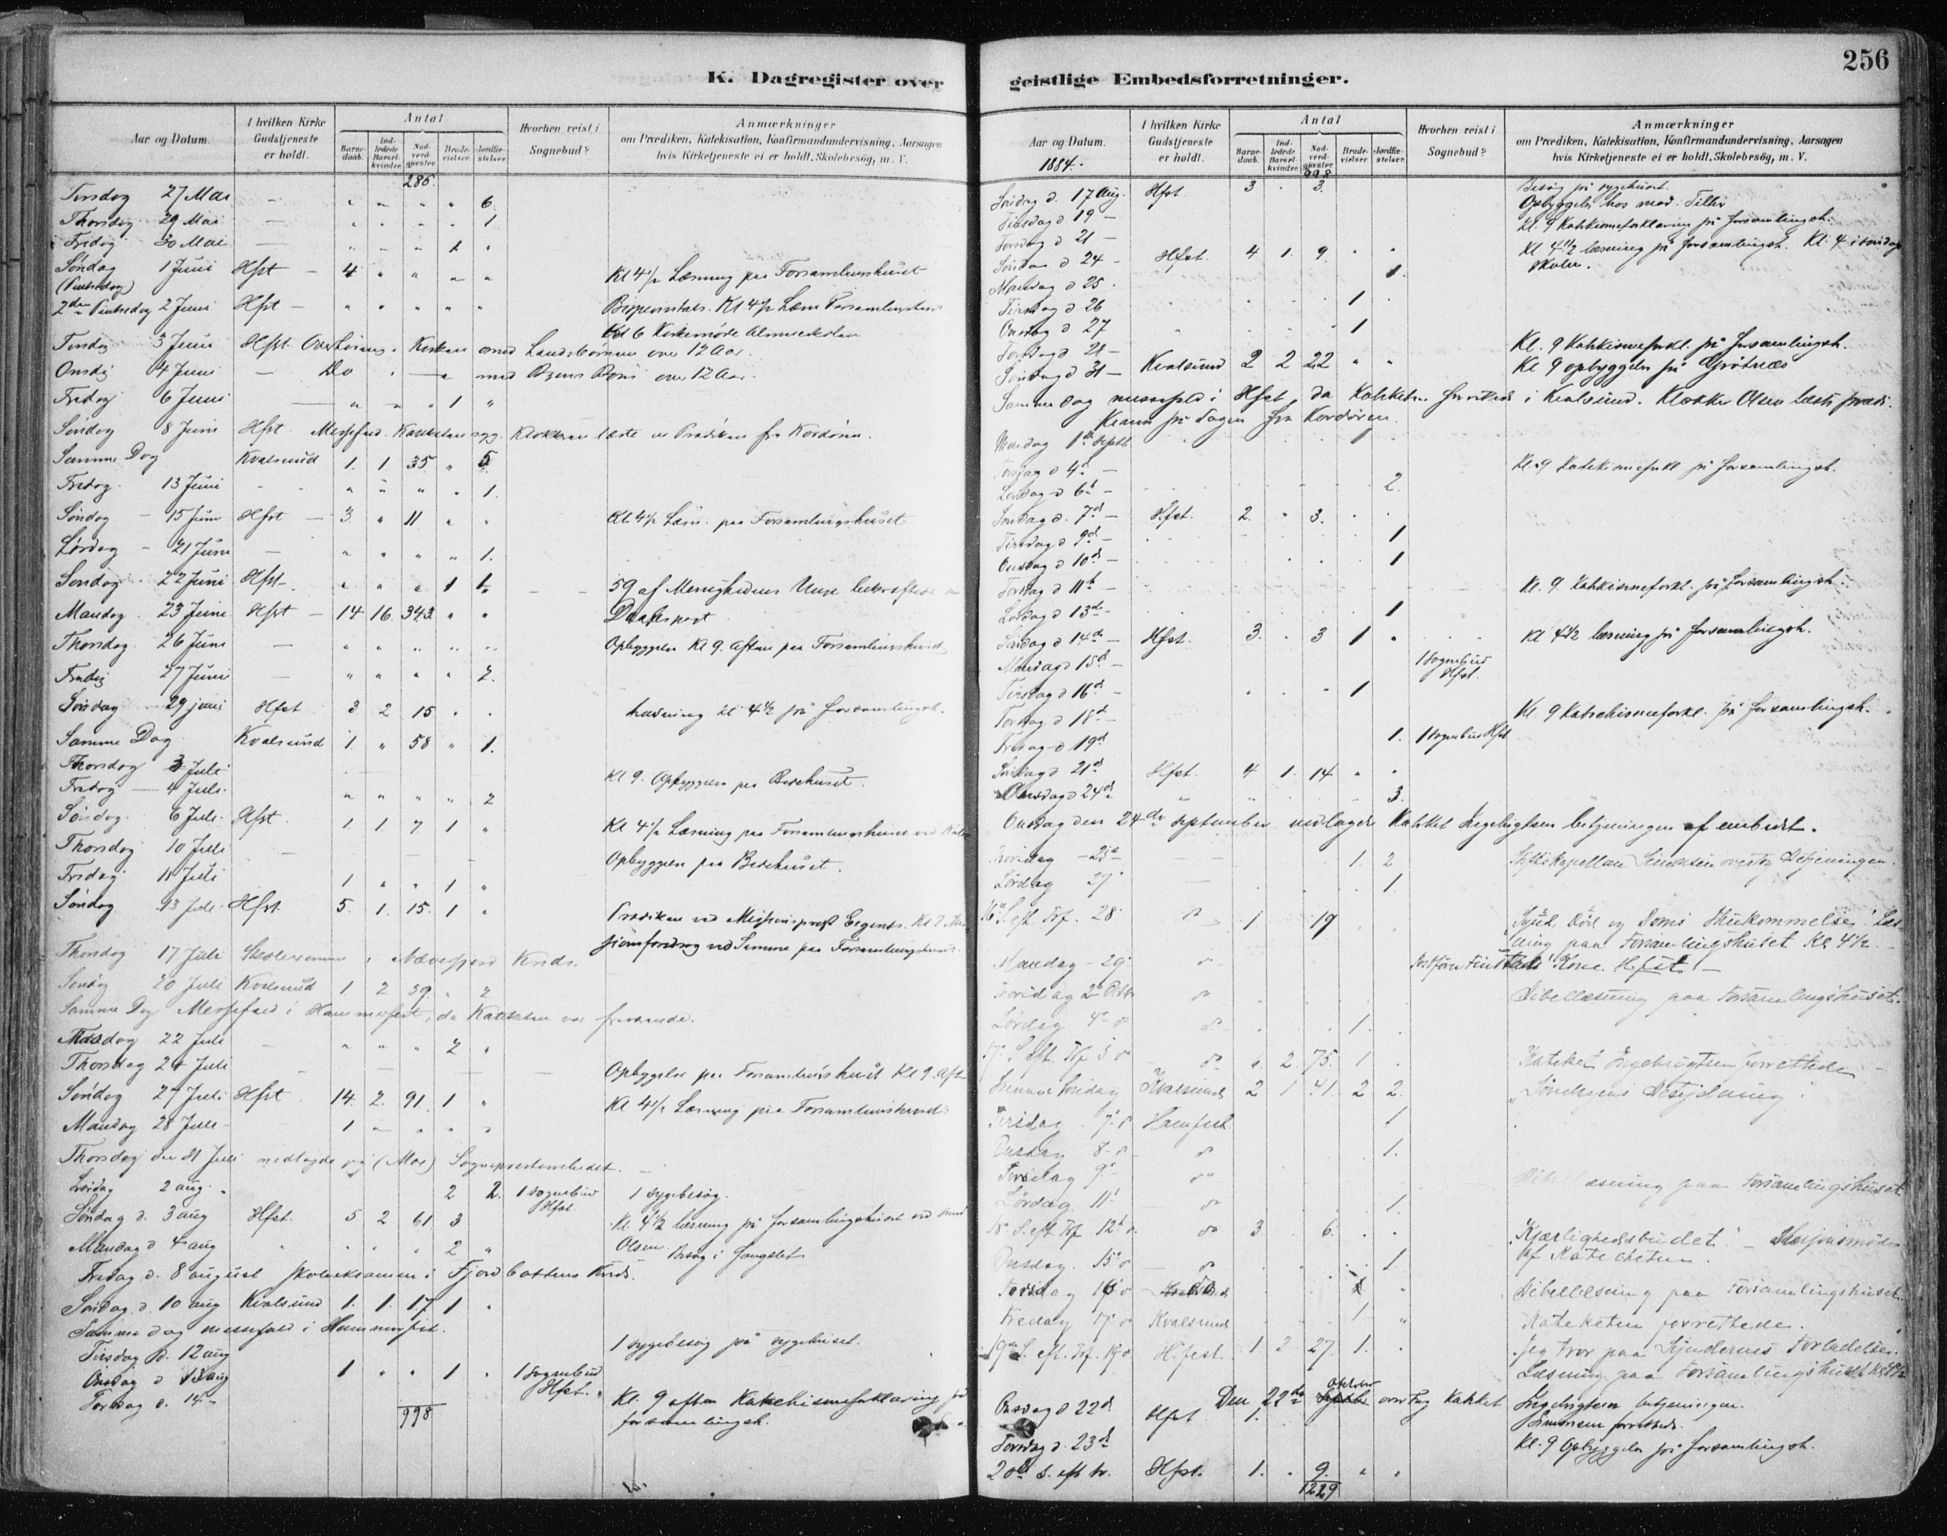 K. Dagregister over
Aar og Datum.
I hvilken Kirke Gudstjeneste er holdt.
Antal
Barnedaab.
Indledede Barselkvinder.
Nadverdgjester.
Brudevielser.
Jordfæstelser.
Hvorhen reist i Sognebud?
Anmærkninger
om Prædiken, Katekisation, Konfirmandundervisning, Aarsagen hvis Kirketjeneste ei er holdt, Skolebesøg, m. V.
286.
Tirsdag 27 Mai - " " " " 6.
Thorsdag 29 Mai " " " " 1
Fredag 30 Mai - " " " 1 "
Søndag 1 Juni Hfst - 4 " " " " Kl 4½ Læsning paa Forsamlingshuset
(Pintsedag)
2den Pintsedag 2 Juni Hfst - " " " " " Kl 4½
Kl 6 Kirkemøde
Tirsdag 3 Juni Hfst. Overhøring i Kirken med Landsbørnene over 12 Aar.
Onsdag 4 Juni - Do " - " med Byens Børn over 12 Aar.
Fredag 6 Juni - " " " 1 "
Søndag 8 Juni Hfst. Messefald. Kateketen syg. Klokkeren læste en Prædiken fra Kordøren.
Samme Dag Kvalsund 1. 1 35. " 5.
Fredag 13 Juni - - " " " " 1.
Søndag - 15 Juni Hfst - 3 " 11 " " Kl 4½ Læsn. paa Forsamlingshuset
Lørdag - 21 Juni - " " " " 1.
Søndag 22 Juni Hfst - " " " 1 1. 59 af Menighedens Unge bekræftede
Mandag 23 Juni Hfst - 14 16. 343. " " Daabspagt
Thorsdag 26 Juni - " " " " " Opbyggelse Kl 9. Aften paa Forsamlingshuset
Fredag 27 Juni - " " " " 2.
Søndag 29 juni Hfst 3 2 15 " . Læsning kl 4½ på forsamlingsh.
Samme Dag Kvalsund 1. " 58 " 1.
Thorsdag 3 Juli Kl 9. Opbyggelse paa Bedehuset.
Fredag - 4 Juli. " " " " 2
Søndag. 6 Juli. Hfst. 1 1 7 1 " Kl 4½ Læsning paa Forsamlingshuset
Thorsdag 10 Juli - - Opbyggelse paa Bedehuset.
Fredag 11 Juli 1 " " 1 "
Søndag 13 Juli. Hfst. 5. 1. 15. 1 " Prædiken ved Missionsprest Kl 7.
ved Samme paa Forsamlingshuset
Thorsdag 17 Juli Skolexamen i Nævefjord Kreds.
Søndag 20 Juli Kvalsund 1 2 39. " 2
Samme Dag Messefald i Hammerfest, da Kateketen var fraværende.
Tirsdag 22 Juli - " " " 2 "
Thorsdag 24 Juli - - - Opbyggelse paa Forsamlingshuset Kl 9. Aften
Søndag 27 Juli Hfst. 14. 2. 91. 1 " Kl 4½ Læsning paa Forsamlingshuset
Mandag 28 Juli. 1 " " " "
Thorsdag den 31 Juli nedlagde jeg (Moe) Sogneprestembedet.
Lørdag 2 aug. 2 2. 1 sognebud Hfst. 1 sygebesøg.
Søndag d. 3 aug Hfst. 5 2 61 3 Kl. 4½ læsning på forsamlingshuset ved
Mandag d 4 aug " " " " 2 " Olsen. Besøg i fængslet
Fredag d. 8 august skoleeksamen i Fjordbottens Kreds.
Søndag d. 10 aug Kvalsund 1. 1. 17. 1 "
Samme dag messefald i Hammerfest.
Tirsdag d. 12 aug 1 sygebesøg på sygehuset.
Onsdag d 13 aug 1 " " 1 " 1 sognebud Hfst.
Torsdag d. 14 - Kl. 9 aften Katekismeforklaring på
998 forsamlingsh.
256
geistlige Embedsforretninger.
Aar og Datum.
1884.
I hvilken Kirke Gudstjeneste er holdt.
Antal
Barnedaab.
Indledede Barselkvinder.
Nadverdgjester.
Brudevielser.
Jordfæstelser.
Hvorhen reist i Sognebud?
Anmærkninger
om Prædiken, Katekisation, Konfirmandundervisning, Aarsagen hvis Kirketjeneste ei er holdt, Skolebesøg, m. V.
998
Søndag d. 17 Aug. Hfst 3 . 3. Besøg på sygehuset.
Tirsdag d 19 - Opbyggelse hos
Torsdag d 21 - Kl. 9 Katekismeforklaring på forsamlingsh.
Søndag d 24 - Hfst. 4 1. 9. " " Kl 4½ læsning på forsamlingsh. Kl. 4 i søndagsskolen.
Mandag d 25. 1.
Tirsdag d 26 1
Onsdag d 27 1
Torsdag d 28 - Kl. 9 Katekismeforkl. på forsamlingsh.
Søndag d 31 - Kvalsund 2 2 22 " " Kl 9 opbyggelse på Grøtnæs
Samme dag messefald i Hfst, da Kateketen forrettede i Kvalsund. Klokker Olsen læste prædi-
kenen på dagen fra Kordøren.
Mandag 1ste Septb 1
Torsdag d 4de - Kl. 9 Katekismeforkl på forsamlingsh.
Lørdag d 6te - 2
Søndag d. 7de - Hfst. 2. " 3. . .
Tirsdag d 9de - 1
Onsdag d 10de - 1
Torsdag d 11te - Kl. 9 Katekismeforkl. på forsamlingsh.
Lørdag d 13de - 1
Søndag d 14de - Hfst. 3. . 3 1 " Kl 4½ læsning på forsamlingsh.
Mandag d 15de - 1 sognebud Hfst.
Tirsdag d 16de - 1
Torsdag d 18de - Kl 9 Katechismeforkl. på forsamlingsh.
Fredag d 19de 1. 1 sognebud Hfst
Søndag d 21de Hfst. 4 1. 14 " "
Onsdag d 24de 3.
Onsdag den 24de september nedlagde Kateket Ingebrigtsen betjeningen af embedet.
Torsdag - 25de 1. 2 Stiftskapellan Simonsen overtog Betjeningen.
Lørdag 27. 1.
16de S. eft. Trf. 28. do 1 19
Læsning paa Forsamlingshuset Kl 4½.
Mandag - 29 do Kone. Hfst -
Torsdag 2den Octbr do Bibellæsning paa Forsamlingshuset.
Lørdag 4de do do 1.
17de S. eft. Trf 5 do - do . 2 75. 1. Kateket Ingebrigtsen forrettede
Samme Søndag Kvalsund 2 1 41. 2 2. "Syndens Betydning".
Tirsdag 7de do Hamfest. 1
Onsdag 8de do 1.
Torsdag 9de Bibellæsning paa Forsamlingshuset
Lørdag 11te do 1.
18de S. eft Trf 12te do do 3 . 6. . "Kjærlighedsbudet" - Missionsmøde
Onsdag. 15de do 1 af Katecheten.
Torsdag 16 do Bibellæsning paa Forsamlingshuset
Fredag 17de do Kvalsund 1 " Kateketen forrettede.
19de S. eft. Trf. 19 do H.fest. 1. 2 27. 1. "Jeg tror paa Syndernes Forladelse".
Læsning paa Forsamlingshuset Kl 4½
Onsdag d 22de Hfst 1. Den 22de Oktober overtog Kateket Ingebrigtsen betjeningen.
Simonsen forrettede.
Torsdag d. 23de Kl. 9 Opbyggelse på forsamlingsh.
20de S. eft tr. Hfst. 1. " 9. " "
1229